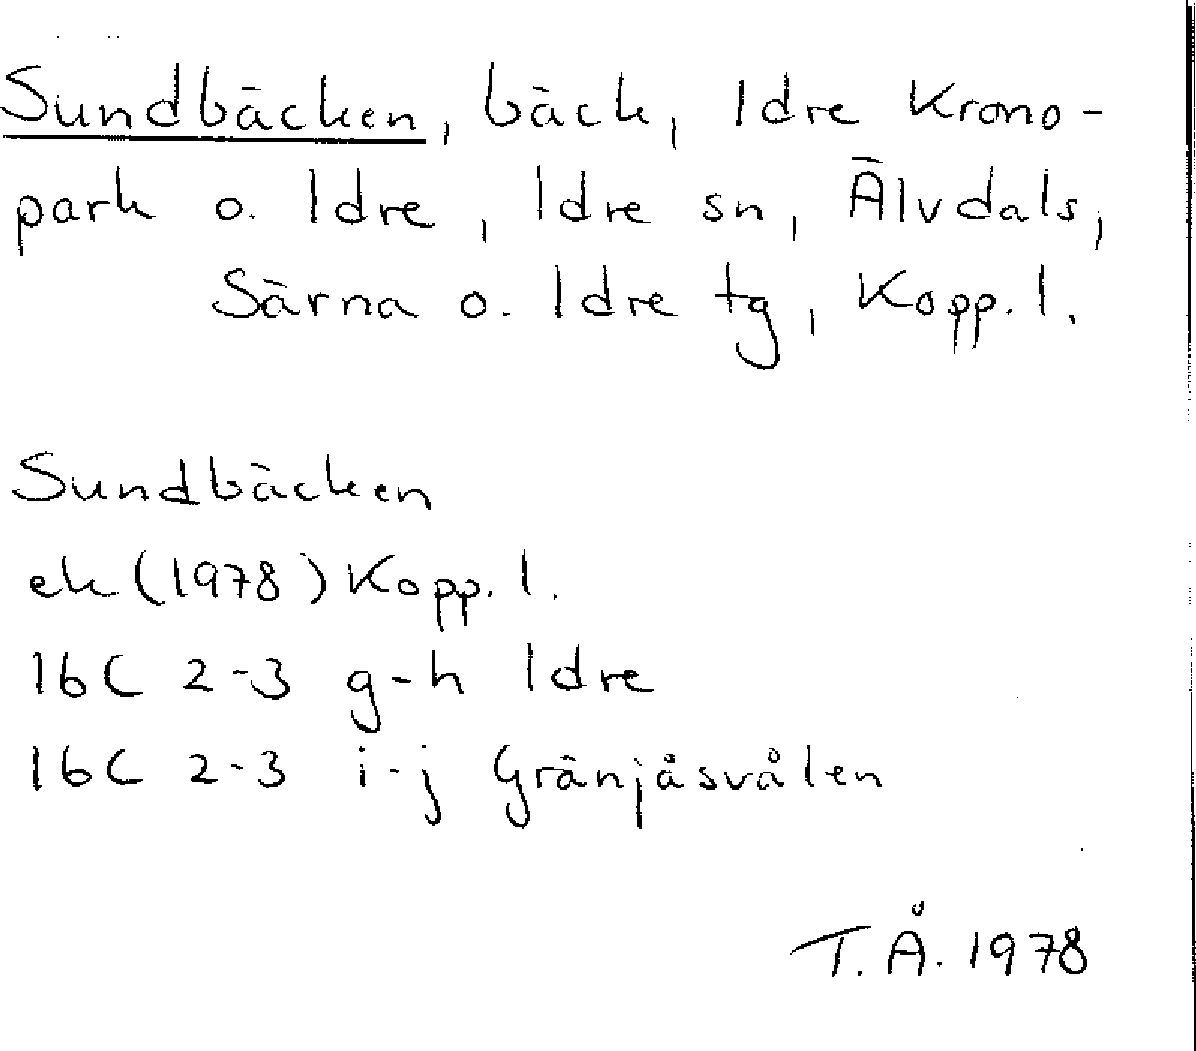 Sundbäcken, bäck, Idre Krono-
park o. Idre, Idre sn, Älvdals,
Särna o. Idre tg, Kopp. l.
Sundbäcken
ek (1978) Kopp. l.
16C 2-3 g-h Idre
16C 2-3 i-j Gränjåsvålen
T. Å. 1978